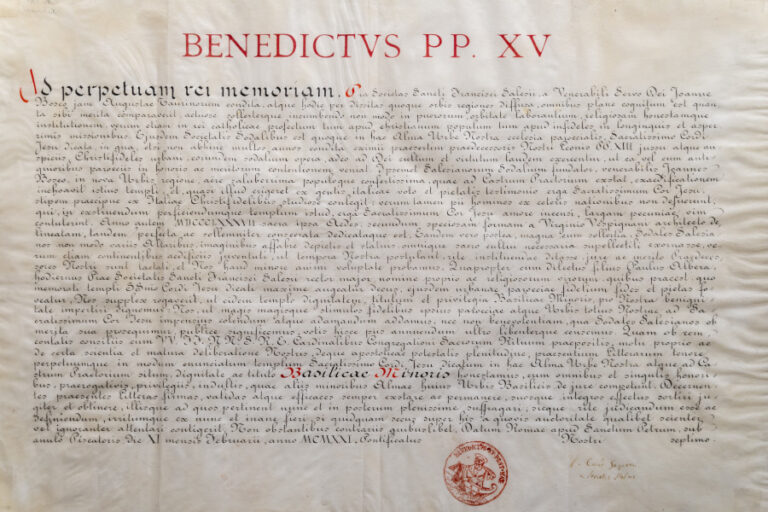 BENEDICTVS PP. XV
Ad perpetuam rei memoriam. Pia Societas Sancti Francisci Salesii, a Venerabili Servo Dei Joanne
Bosco jam Augustae Taurinorum condita, atque hodie per dissitas quoque orbis regiones diffusa, omnibus plane cognitum est quan
ta sibi merita comparaverit, actuose sollerterque incumbendo non modo in puerorum, orbitate laborantium, religiosam honestamque
institutionem, verum etiam in rei catholicae profectum tum apud christianum populum tum apud infideles in longinquis et asper
rimis missionibus. Ejusdem Societatis Sodalibus est quoque in hac Alma Urbe Nostra ecclesia paroecialis Sacratissimo Cordi
Jesu dicata, in qua, etsi non abhinc multos annos condita, eximii praesertim praedecessoris Nostri Leonis PP. XIII jussu atque au
spiciis, Christifideles urbani, eorumdem sodalium opera, adeo ad Dei cultum et virtutum laudem exercentur, ut ea vel cum anti
quioribus paroeciis in honoris ac meritorum contentionem veniat. Ipsemet Salesianorum Sodalium fundator, venerabilis Joannes
Bosco, in nova Urbis regione, aere salubriore populoque confertissima, quae ad Castrum Praetorium exstat, exaedificationem
inchoavit istius templi, et, quasi illud erigeret ex gentis italicae voto et pietatis testimonio erga Sacratissimum Cor Jesu,
stipem praecipue ex Italiae Christifidelibus studiose collegit; verumtamen pii homines ex ceteris nationibus non defuerunt,
qui, in exstruendum perficiendumque templum istud, erga Sacratissimum Cor Jesu amore incensi, largam pecuniae vim
contulerint. Anno autem MDCCCLXXXVII sacra ipsa Aedes, secundum speciosam formam a Virginio Vespignani architecto de
lineatam, tandem perfecta ac sollemniter consecrata dedicataque est. Eamdem vero postea, magna cum sollertia, Sodales Salesia
nos non modo variis Altaribus, imaginibus affabre depictis et statuis omnique sacro cultui necessaria supellectili exornasse, ve
rum etiam continentibus aedificiis juventuti, ut tempora Nostra postulant, rite instituendae ditasse jure ac merito Praedeces
sores Nostri sunt laetati, et Nos haud minore animi voluptate probamus. Quapropter cum dilectus filius Paulus Albera,
hodiernus Piae Societatis Sancti Francisci Salesii rector major, nomine proprio ac religiosorum virorum, quibus praeest, quo
memorati templi SSmo Cordi Jesu dicati maxime augeatur decus, ejusdem urbanae paroeciae fidelium fides et pietas fo
veatur, Nos supplex rogaverit, ut eidem templo dignitatem, titulum et privilegia Basilicae Minoris, pro Nostra benigni
tate impertiri dignemur; Nos, ut magis magisque stimulos fidelibus ipsius paroeciae atque Urbis totius Nostrae ad Sa
cratissimum Cor Jesu impensius colendum atque adamandum addamus, nec non benevolentiam, qua Sodales Salesianos ob
merita sua prosequimur, publice significemus, votis hisce piis annuendum ultro libenterque censuimus. Quam ob rem,
conlatis consiliis cum VV. FF. NN. S. R. E. Cardinalibus Congregationi Sacrorum Rituum praepositis, motu proprio ac
de certa scientia et matura deliberatione Nostris, deque apostolicae potestatis plenitudine, praesentium Litterarum tenore,
perpetuumque in modum enunciatum templum Sacratissimo Cordi Jesu dicatum, in hac Alma Urbe Nostra atque ad Ca
strum Praetorium situm, dignitate ac titulo Basilicae Minoris honestamus, cum omnibus et singulis honori
bus, praerogativis, privilegiis, indultis, quae aliis minoribus Almae hujus Urbis Basilicis, de jure competunt. Decernen
tes praesentes Litteras firmas, validas atque efficaces semper exstare ac permanere, suosque integros effectus sortiri ju
giter et obtinere, illisque ad quos pertinent nunc et in posterum plenissime suffragari; sicque rite judicandum esse ac
definiendum, irritumque ex nunc et inane fieri, si quidquam secus super his, a quovis, auctoritate qualibet, scienter
vel ignoranter attentari contigerit. Non obstantibus contrariis quibuslibet. Datum Romae apud Sanctum Petrum, sub
anulo Piscatoris, Die XI mensis Februarii, anno MCMXXI, Pontificatus Nostri septimo.